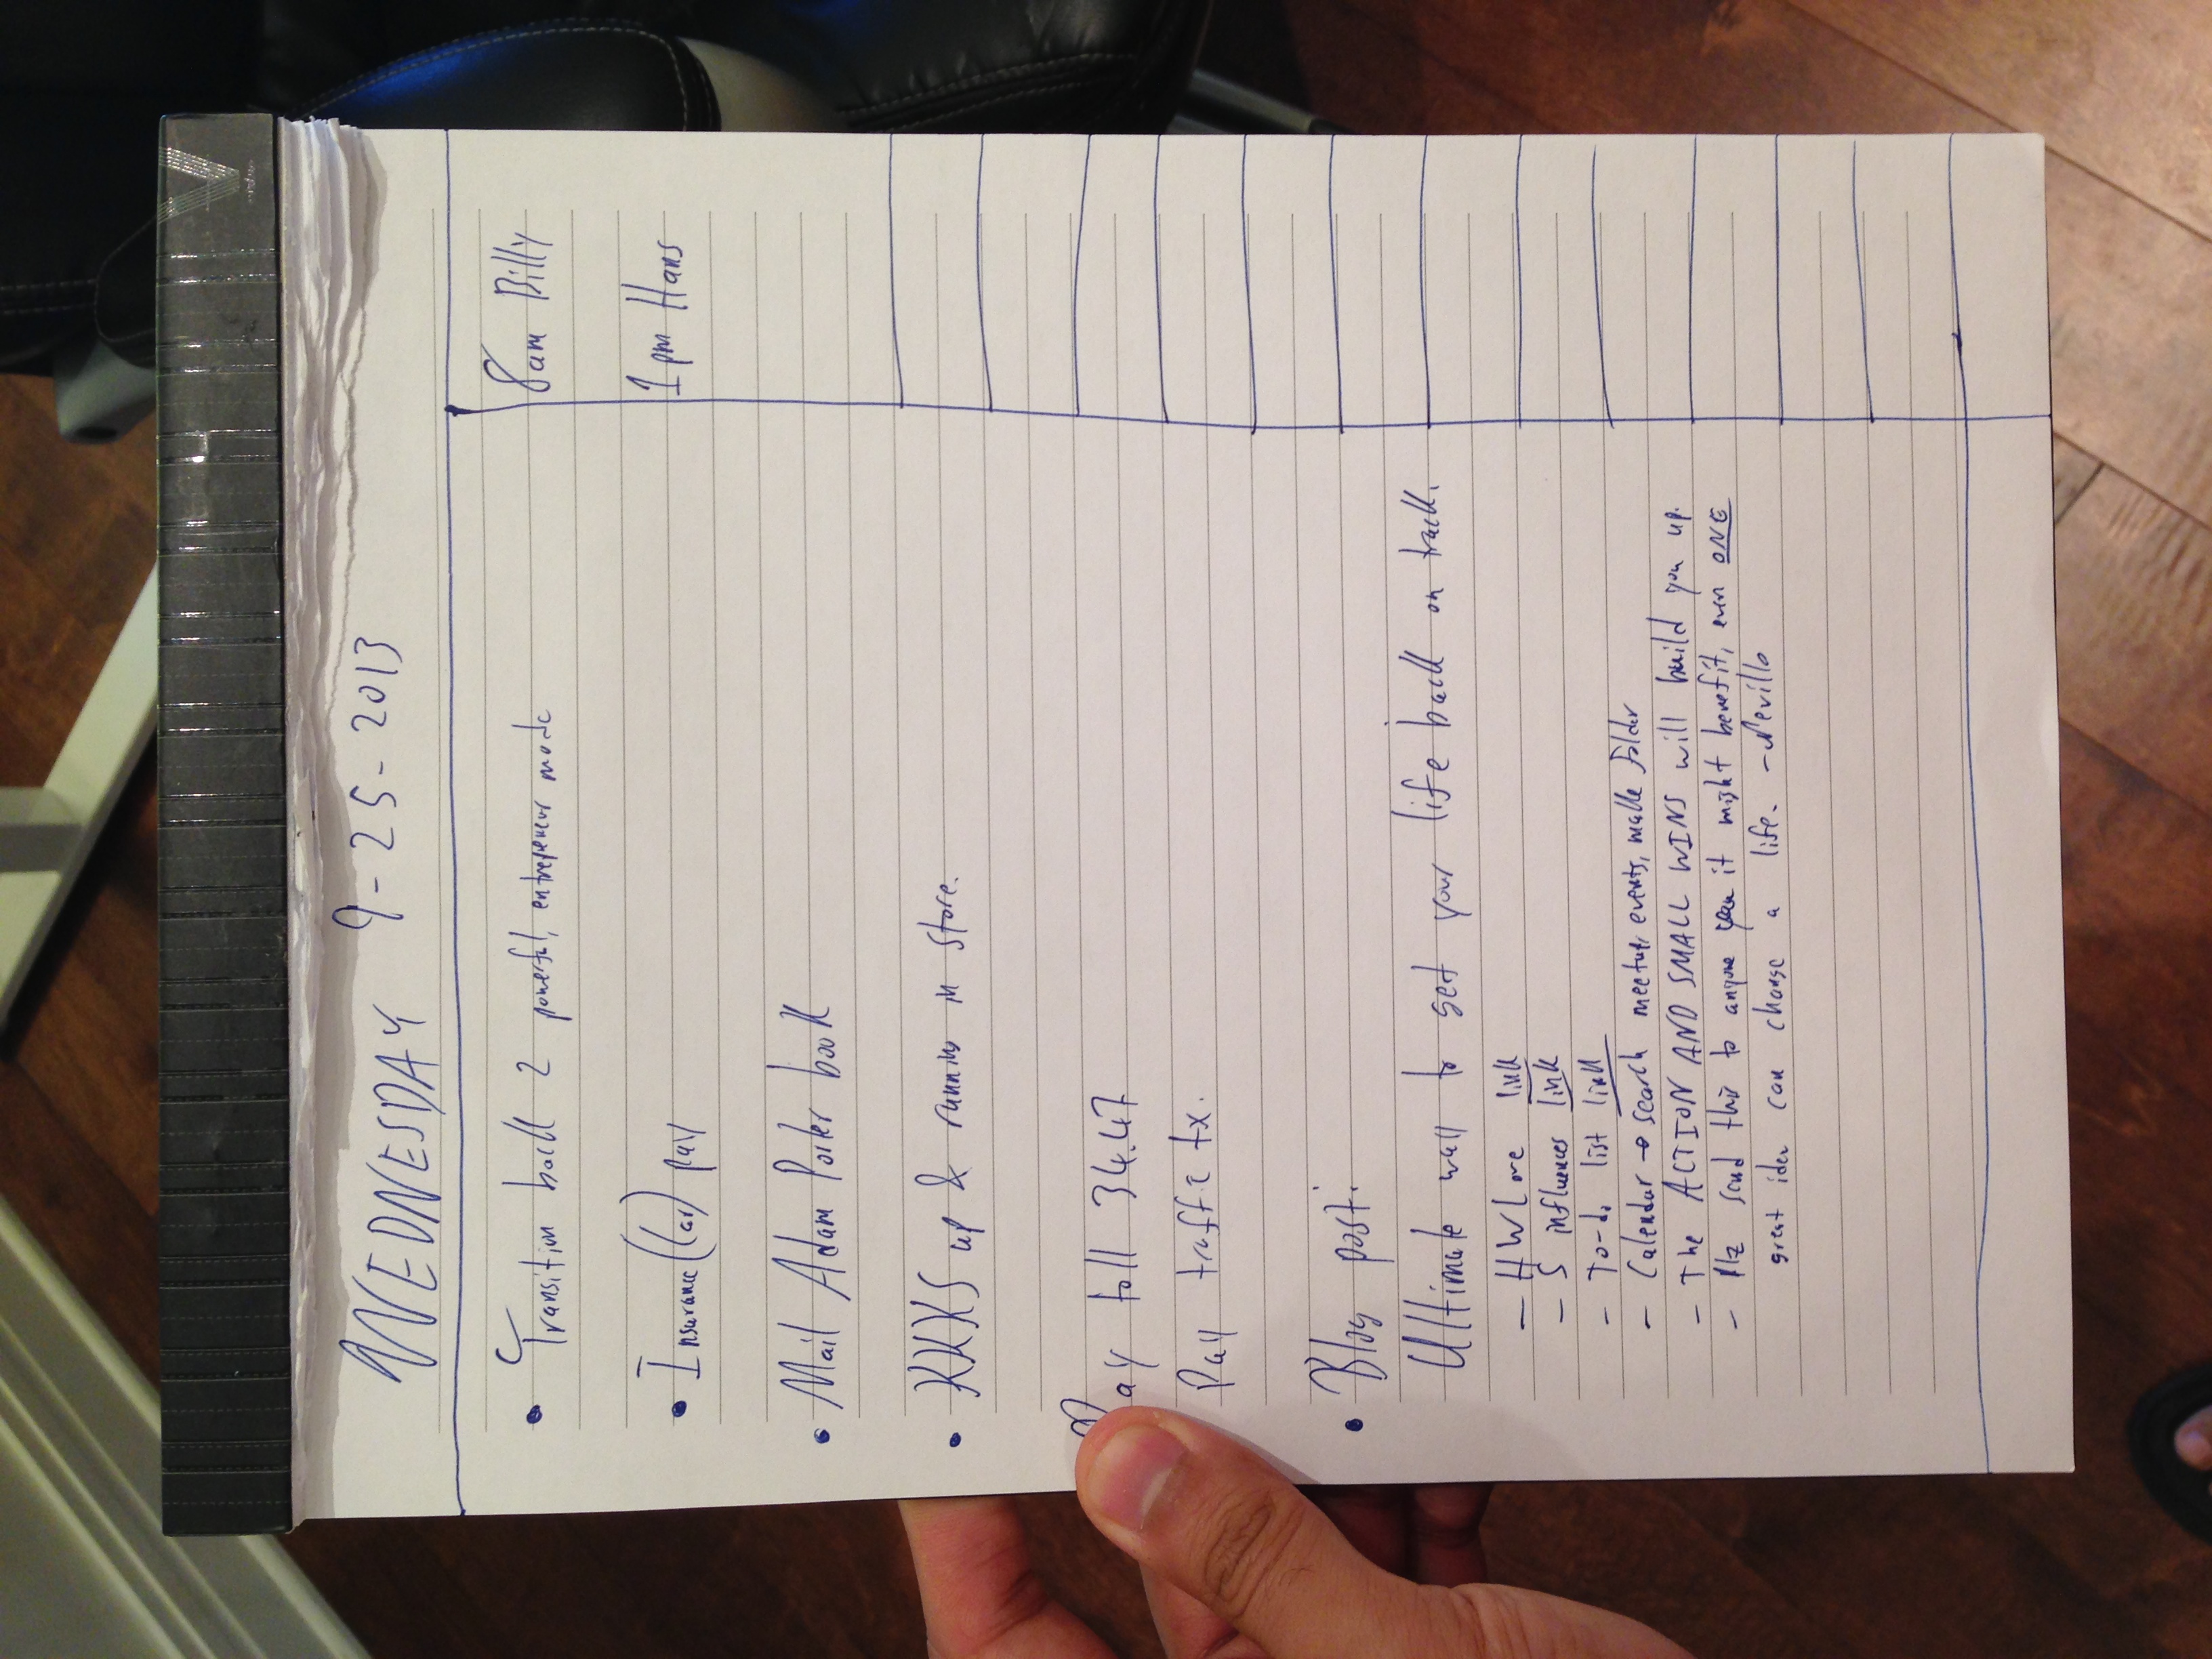 WEDNESDAY 9-25-2013
8am Billy
1pm Hans
• Transition back 2 powerful, entrepeneur mode
• Insurance (Car) pay
• Mail Adam Porter book
• KKKS up & running in store.
Pay toll 34.47
Pay traffic tx.
• Blog post.
Ultimate way to get your life back on track.
- HWL ore link
- 5 influences link
- To-do list link
- Calendar → search meetup, events, make folder
- The ACTION AND SMALL WINS will build you up.
- Plz send this to anyone you it might benefit, even ONE
great idea can change a life. -Nevillo